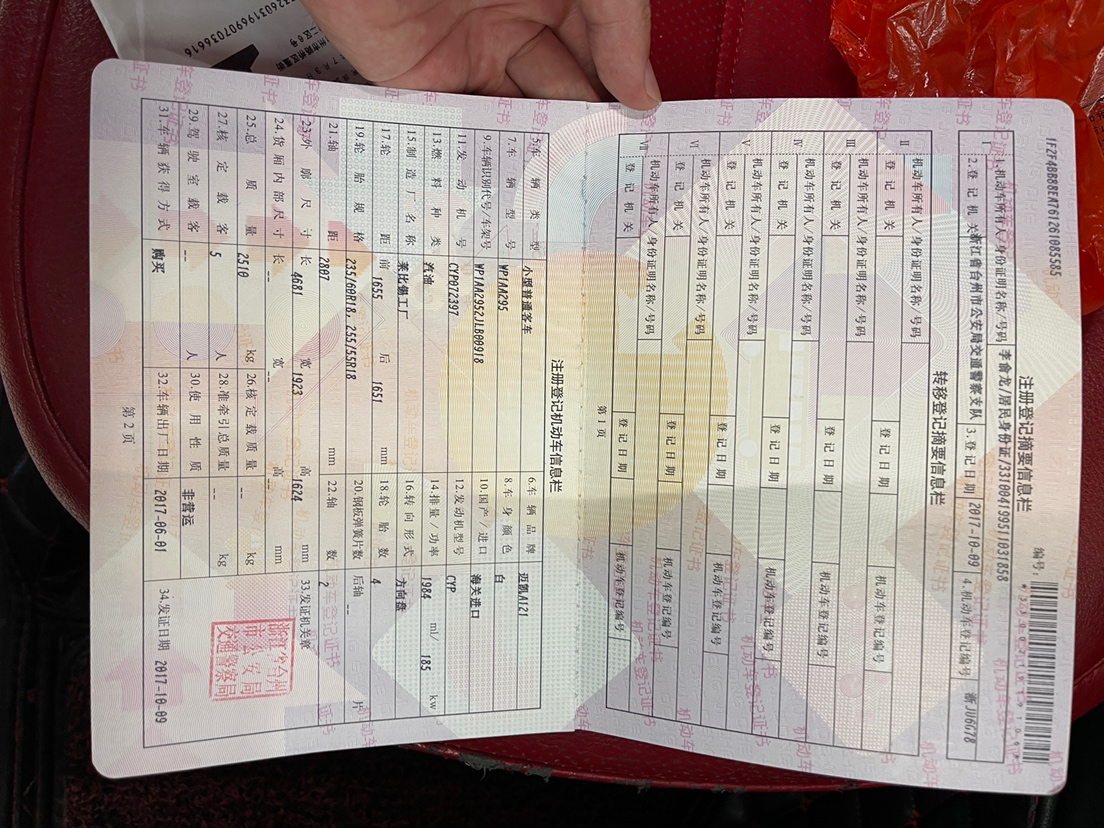 1F2F4BBB8EA761261085585
编号:
注册登记摘要信息栏
Ⅰ 1.机动车所有人/身份证明名称/号码 李俞龙/居民身份证/331004199511031858
2.登记机关 浙江省台州市公安局交通警察支队 3.登记日期 2017-10-09 4.机动车登记编号 浙JU6G78
转移登记摘要信息栏
Ⅱ 机动车所有人/身份证明名称/号码
登记机关 登记日期 机动车登记编号
Ⅲ 机动车所有人/身份证明名称/号码
登记机关 登记日期 机动车登记编号
Ⅳ 机动车所有人/身份证明名称/号码
登记机关 登记日期 机动车登记编号
Ⅴ 机动车所有人/身份证明名称/号码
登记机关 登记日期 机动车登记编号
Ⅵ 机动车所有人/身份证明名称/号码
登记机关 登记日期 机动车登记编号
Ⅶ 机动车所有人/身份证明名称/号码
登记机关 登记日期 机动车登记编号
第1页
注册登记机动车信息栏
5.车辆类型 小型普通客车 6.车辆品牌 迈凯A121
7.车辆型号 WP1AA295 8.车身颜色 白
9.车辆识别代号/车架号 WP1AA2952JLB00918 10.国产/进口 海关进口
11.发动机号 CYP072397 12.发动机型号 CYP
13.燃料种类 汽油 14.排量/功率 1984 ml/ 185 kw
15.制造厂名称 莱比锡工厂 16.转向形式 方向盘
17.轮距 前 1655 后 1651 mm 18.轮胎数 4
19.轮胎规格 235/60R18,255/55R18 20.钢板弹簧片数 后轴 -- 片
21.轴距 2807 mm 22.轴数 2
23.外廓尺寸 长 4681 宽 1923 高 1624 mm 33.发证机关章
24.货厢内部尺寸 长 -- 宽 -- 高 -- mm
25.总质量 2510 kg 26.核定载质量 -- kg
27.核定载客 5 人 28.准牵引总质量 -- kg
29.驾驶室载客 -- 人 30.使用性质 非营运
31.车辆获得方式 购买 32.车辆出厂日期 2017-06-01 34.发证日期 2017-10-09
浙江省台州
市公安局
交通警察局
第2页